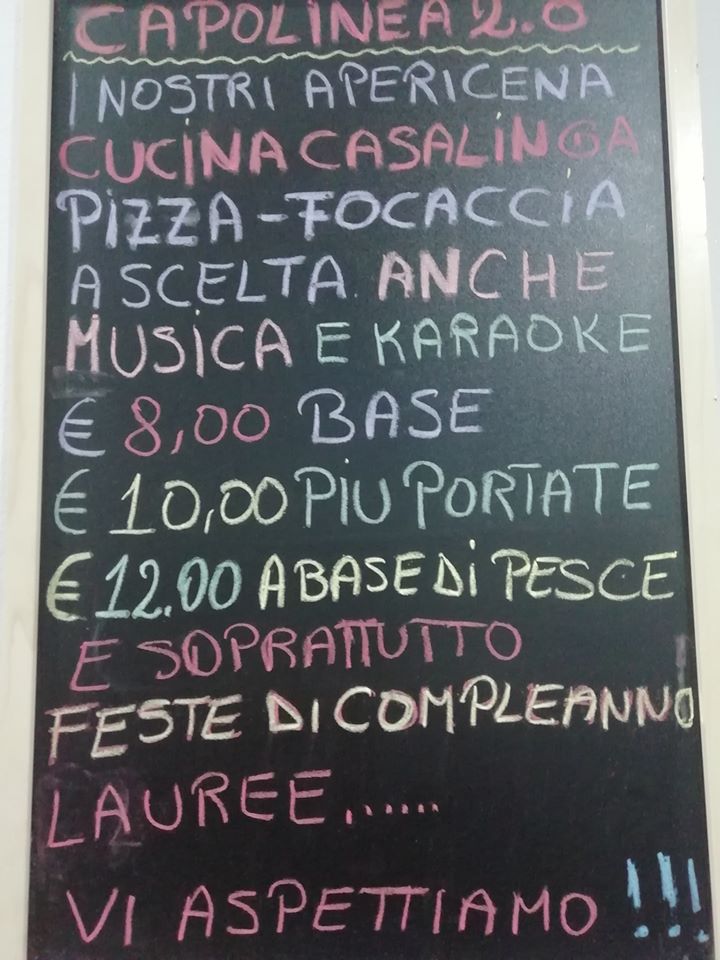 CAPOLINEA 2.0
I NOSTRI APERICENA
CUCINA CASALINGA
PIZZA - FOCACCIA
A SCELTA ANCHE
MUSICA E KARAOKE
€ 8,00 BASE
€ 10,00 PIU PORTATE
€ 12.00 A BASE DI PESCE
E SOPRATTUTTO
FESTE DI COMPLEANNO
LAUREE,......
VI ASPETTIAMO !!!